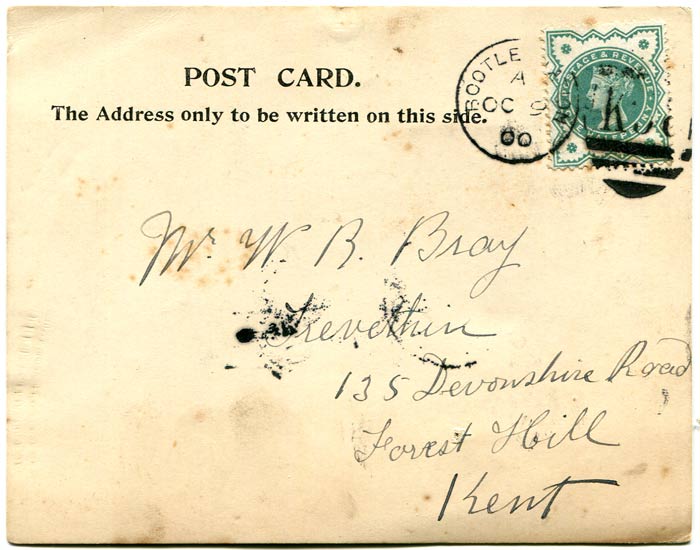 POST CARD.
The Address only to be written on this side.
BOOTLE
A
OC
00
POSTAGE & REVENUE
Mr W. R. Bray
Trevethin
135 Devonshire Road
Forest Hill
Kent